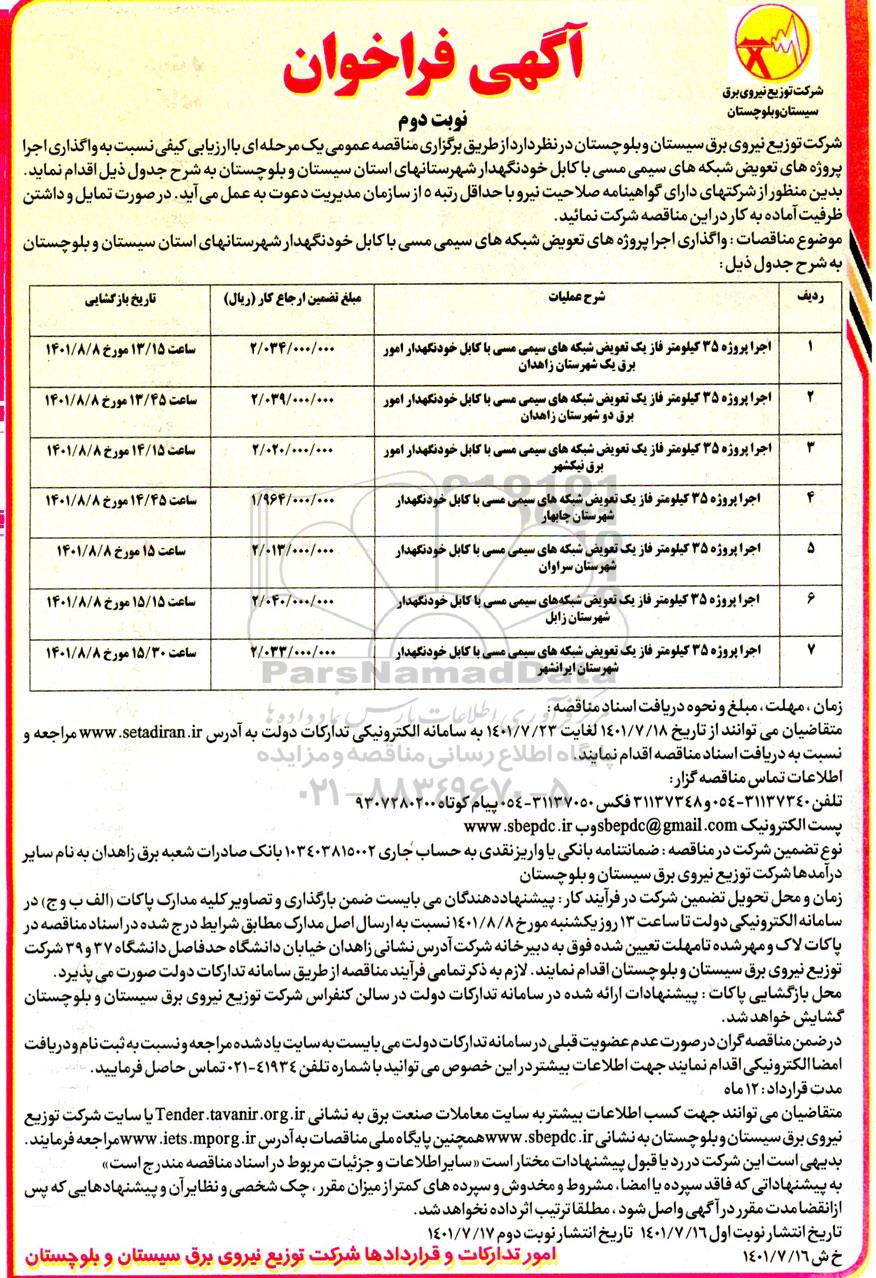 شرکت توزیع نیروی برق
سیستان و بلوچستان
آگهی فراخوان
نوبت دوم
شرکت توزیع نیروی برق سیستان و بلوچستان در نظر دارد از طریق برگزاری مناقصه عمومی یک مرحله ای با ارزیابی کیفی نسبت به واگذاری اجرا
پروژه های تعویض شبکه های سیمی مسی با کابل خودنگهدار شهرستانهای استان سیستان و بلوچستان به شرح جدول ذیل اقدام نماید.
بدین منظور از شرکتهای دارای گواهینامه صلاحیت نیرو با حداقل رتبه ۵ از سازمان مدیریت دعوت به عمل می آید. در صورت تمایل و داشتن
ظرفیت آماده به کار در این مناقصه شرکت نمائید.
موضوع مناقصات : واگذاری اجرا پروژه های تعویض شبکه های سیمی مسی با کابل خودنگهدار شهرستانهای استان سیستان و بلوچستان
به شرح جدول ذیل :
ردیف شرح عملیات مبلغ تضمین ارجاع کار (ریال) تاریخ بازگشایی
۱ اجرا پروژه ۳۵ کیلومتر فاز یک تعویض شبکه های سیمی مسی با کابل خودنگهدار امور ۲/۰۳۴/۰۰۰/۰۰۰ ساعت ۱۳/۱۵ مورخ ۱۴۰۱/۸/۸
برق یک شهرستان زاهدان
۲ اجرا پروژه ۳۵ کیلومتر فاز یک تعویض شبکه های سیمی مسی با کابل خودنگهدار امور ۲/۰۳۹/۰۰۰/۰۰۰ ساعت ۱۳/۴۵ مورخ ۱۴۰۱/۸/۸
برق دو شهرستان زاهدان
۳ اجرا پروژه ۳۵ کیلومتر فاز یک تعویض شبکه های سیمی مسی با کابل خودنگهدار امور ۲/۰۲۰/۰۰۰/۰۰۰ ساعت ۱۴/۱۵ مورخ ۱۴۰۱/۸/۸
برق نیکشهر
۴ اجرا پروژه ۳۵ کیلومتر فاز یک تعویض شبکه های سیمی مسی با کابل خودنگهدار ۱/۹۶۴/۰۰۰/۰۰۰ ساعت ۱۴/۴۵ مورخ ۱۴۰۱/۸/۸
شهرستان چابهار
۵ اجرا پروژه ۳۵ کیلومتر فاز یک تعویض شبکه های سیمی مسی با کابل خودنگهدار ۲/۰۱۳/۰۰۰/۰۰۰ ساعت ۱۵ مورخ ۱۴۰۱/۸/۸
شهرستان سراوان
۶ اجرا پروژه ۳۵ کیلومتر فاز یک تعویض شبکه‌های سیمی مسی با کابل خودنگهدار ۲/۰۴۰/۰۰۰/۰۰۰ ساعت ۱۵/۱۵ مورخ ۱۴۰۱/۸/۸
شهرستان زابل
۷ اجرا پروژه ۳۵ کیلومتر فاز یک تعویض شبکه های سیمی مسی با کابل خودنگهدار ۲/۰۳۳/۰۰۰/۰۰۰ ساعت ۱۵/۳۰ مورخ ۱۴۰۱/۸/۸
شهرستان ایرانشهر
ParsNamadData
مرکز فرآوری اطلاعات پارس نماد داده ها
پایگاه اطلاع رسانی مناقصه و مزایده
۰۲۱-۸۸۳۴۹۶۷۰-۵
زمان ، مهلت ، مبلغ و نحوه دریافت اسناد مناقصه :
متقاضیان می توانند از تاریخ ۱۴۰۱/۷/۱۸ لغایت ۱۴۰۱/۷/۲۳ به سامانه الکترونیکی تدارکات دولت به آدرس www.setadiran.ir مراجعه و
نسبت به دریافت اسناد مناقصه اقدام نمایند.
اطلاعات تماس مناقصه گزار:
تلفن ۳۱۱۳۷۳۴۰-۰۵۴ و ۳۱۱۳۷۳۴۸ فکس ۳۱۱۳۷۰۵۰-۰۵۴ پیام کوتاه ۹۳۰۷۲۸۰۲۰۰
پست الکترونیک sbepdc@gmail.com وب www.sbepdc.ir
نوع تضمین شرکت در مناقصه : ضمانتنامه بانکی یا واریز نقدی به حساب جاری ۱۰۳۴۰۳۸۱۵۰۰۲ بانک صادرات شعبه برق زاهدان به نام سایر
درآمدها شرکت توزیع نیروی برق سیستان و بلوچستان
زمان و محل تحویل تضمین شرکت در فرآیند کار : پیشنهاددهندگان می بایست ضمن بارگذاری و تصاویر کلیه مدارک پاکات (الف ب و ج) در
سامانه الکترونیکی دولت تا ساعت ۱۳ روز یکشنبه مورخ ۱۴۰۱/۸/۸ نسبت به ارسال اصل مدارک مطابق شرایط درج شده در اسناد مناقصه در
پاکات لاک و مهر شده تا مهلت تعیین شده فوق به دبیرخانه شرکت آدرس نشانی زاهدان خیابان دانشگاه حدفاصل دانشگاه ۳۷ و ۳۹ شرکت
توزیع نیروی برق سیستان و بلوچستان اقدام نمایند. لازم به ذکر تمامی فرآیند مناقصه از طریق سامانه تدارکات دولت صورت می پذیرد.
محل بازگشایی پاکات : پیشنهادات ارائه شده در سامانه تدارکات دولت در سالن کنفراس شرکت توزیع نیروی برق سیستان و بلوچستان
گشایش خواهد شد.
در ضمن مناقصه گران در صورت عدم عضویت قبلی در سامانه تدارکات دولت می بایست به سایت یاد شده مراجعه و نسبت به ثبت نام و دریافت
امضا الکترونیکی اقدام نمایند جهت اطلاعات بیشتر در این خصوص می توانید با شماره تلفن ۴۱۹۳۴-۰۲۱ تماس حاصل فرمایید.
مدت قرارداد: ۱۲ ماه
متقاضیان می توانند جهت کسب اطلاعات بیشتر به سایت معاملات صنعت برق به نشانی Tender.tavanir.org.ir یا سایت شرکت توزیع
نیروی برق سیستان و بلوچستان به نشانی www.sbepdc.ir همچنین پایگاه ملی مناقصات به آدرس www.iets.mporg.ir مراجعه فرمایند.
بدیهی است این شرکت در رد یا قبول پیشنهادات مختار است «سایر اطلاعات و جزئیات مربوط در اسناد مناقصه مندرج است»
به پیشنهاداتی که فاقد سپرده یا امضا، مشروط و مخدوش و سپرده های کمتر از میزان مقرر ، چک شخصی و نظایر آن و پیشنهادهایی که پس
از انقضا مدت مقرر در آگهی واصل شود ، مطلقا ترتیب اثر داده نخواهد شد.
تاریخ انتشار نوبت اول ۱۴۰۱/۷/۱۶ تاریخ انتشار نوبت دوم ۱۴۰۱/۷/۱۷
خ ش ۱۴۰۱/۷/۱۶
امور تدارکات و قراردادها شرکت توزیع نیروی برق سیستان و بلوچستان